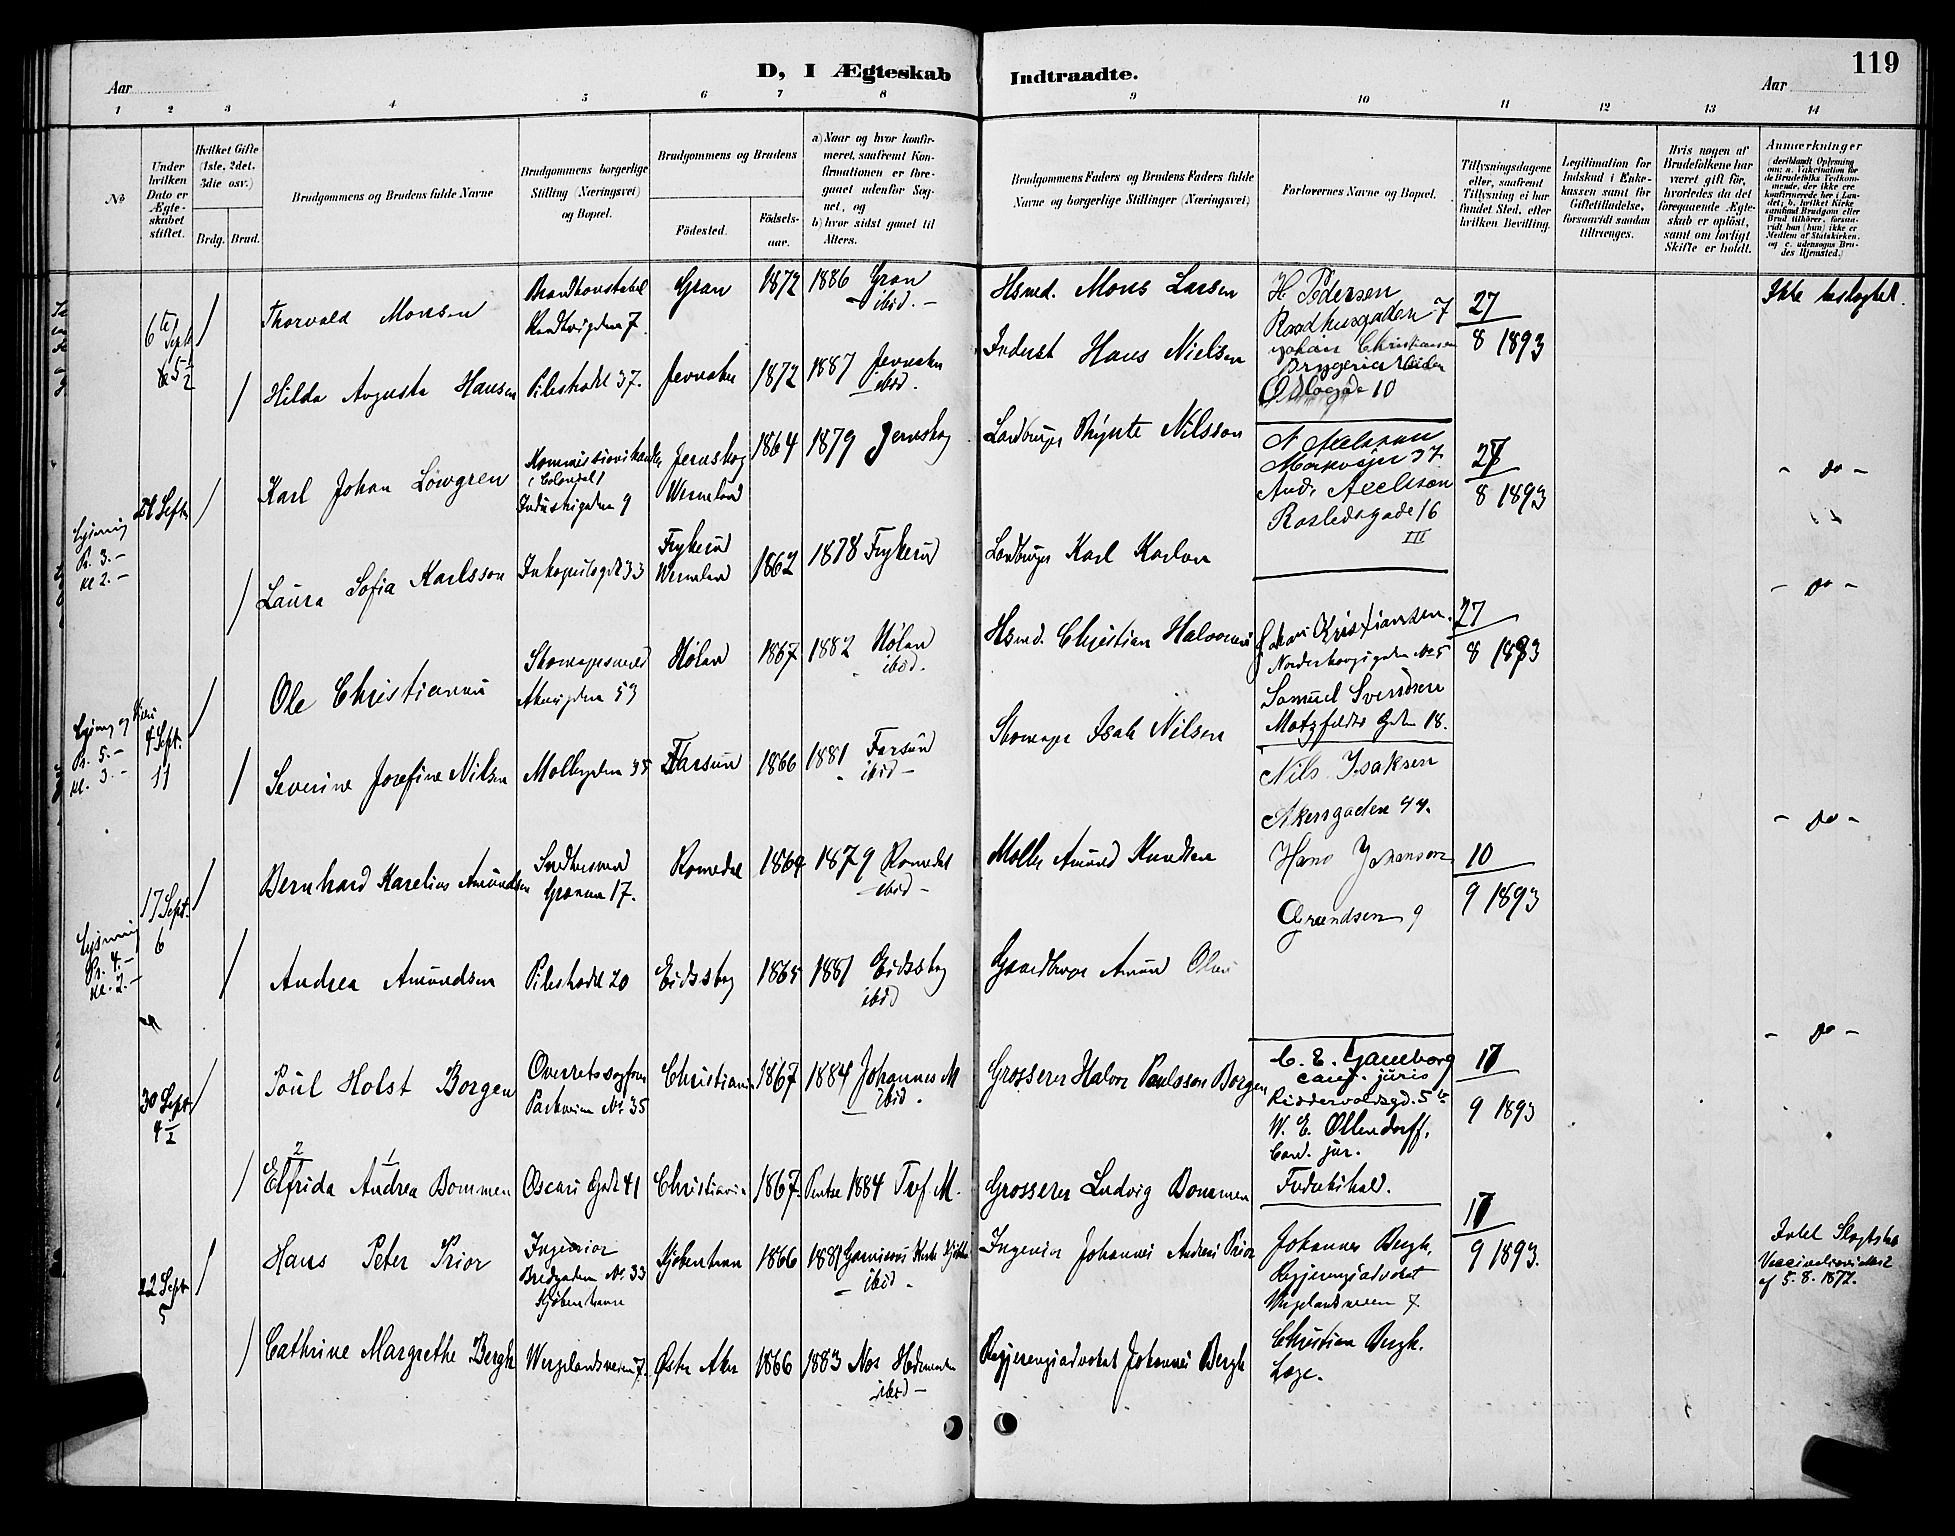 119
D, I Ægteskab Indtraadte.
Aar
Aar
1 2 3 4 5 6 7 8 9 10 11 12 13 14
No
Under hvilken Dato er Ægteskabet stiftet.
Hvilket Gifte (1ste, 2det, 3die osv.)
Brdg. Brud.
Brudgommens og Brudens fulde Navne
Brudgommens borgerlige Stilling (Næringsvei) og Bopæl.
Brudgommens og Brudens
Fødested.
Fødselsaar.
a) Naar og hvor konfirmeret, saafremt Konfirmationen er foregaaet udenfor Sognet, og
b) hvor sidst gaaet til Alters.
Brudgommens Faders og Brudens Faders fulde Navne og borgerlige Stillinger (Næringsvei)
Forlovernes Navne og Bopæl.
Tillysningsdagene eller, saafremt Tillysning ei har fundet Sted, efter hvilken Bevilling.
Legitimation for Indskud i Enkekassen samt for Giftetilladelse, forsaavidt saadan tiltrænges.
Hvis nogen af Brudefolkene har været gift før, hvorledes da det foregaaende Ægteskab er opløst, samt om lovligt Skifte er holdt.
Anmærkninger
(deriblandt Oplysning om: a. Vakcination for de Brudefolks Vedkommende, der ikke ere konfirmerede her i Landet; b. hvilket Kirkesamfund Brudgom eller Brud tilhører, forsaavidt han (hun) ikke er Medlem af Statskirken, og c. udensogns Brudes Hjemsted.)
6te Sept 5 1/2
/ Thorvald Monsen
Brandkonstabel
7.
Gran 1872 1886 Gran
ibid. -
Hsmd. Mons Larsen
H. Pedersen
Raadhusgaden 7
Johan Christiansen
Bryggeriarbeider
Oslogade 10
27
8 1893
Ikke beslægtet.
/ Hilda Augusta Hansen
Pilestrædet 37.
Jevnaker 1872 1887 Jevnaker
ibid.
Inderst Hans Nielsen
/ Karl Johan Löwgren
Industrigaden 9
Jernskog
Wermland
1864 1879 Jernskog
Landbruger Nilsson
N. Axelsson
Markveien 37
And. Axelsson
Rostedsgade 16
III
27
8 1893
- do -
Lysning
Pr. 3. -
Kl. 2. -
/ Laura Sofia Karlsson
33
Frykerud
Wermland
1862 1878 Frykerud
Landbruger Karl Karlson
- do -
Pr. 5. -
Kl. 3. -
4 Sept.
/ Ole Christiansen
Skomagersvend
53
Høland 1867 1882 Høland
ibid.
Hsmd. Christian Halvorsen
Kristiansen.
No 5
Samuel Svendsen
Motzfeldts Gade 18.
27
8 1893
/ Severine Josefine Nilsen
Møllergaden 35
Farsund 1866 1881 Farsund
- ibid -
Skomager Isak Nilsen
Nils Isaksen
Akersgaden 44.
- do -
Lysning
Pr. 4. -
Kl. 2. -
17 Sept.
6
/ Bernhard Karelius Amundsen
Snedkersvend
Grønnen 17.
Romedal 1864 1879 Romedal
ibid -
Møller Amund Knudsen
Hans Johanson
Grundsen 9
10
9 1893
/ Andrea Amundsen
Pilestrædet 20
Eidsskog 1865 1881 Eidsskog
ibid
Gaardbruger Amund Olsen
- do -
30 Sept
4 1/2
/ Poul Holst Borgen
Overretssagfører
Parkveien No. 35
Christiania 1867 1884 Johannes M
ibid.
Grosserer Halvor Paulsson Borgen
cand. juris
Riddervoldsgd. 5
W. E. Ollendorff,
Cand. jur.
Fredrikshald.
17
9 1893
2 1
/ Elfrida Andrea Bommen
Oscars Gade 41
Christiania 1867. 1884 Tref M.
Grosserer Ludvig Bommen
22 Sept
5
/ Hans Peter Prior
Ingeniør
Bredgaden No. 33
Kjøbenhavn
Kjøbenhavn 1866 1881 Garnisons Kirke Kjøbh
- ibid -
Ingeniør Johannes Andreas Prior
Johannes Bergh,
Regjeringsadvokat
Wergelandsveien 7
Christian Bergh.
Læge.
17
9 1893.
Intet Slægtskab
af 5. 8. 1872.
/ Cathrine Margrethe Bergh
Wergelandsveien 7.
Østre Aker 1866 1883 Nes Hedemarken
ibid -
Regjeringsadvokat Johannes Bergh